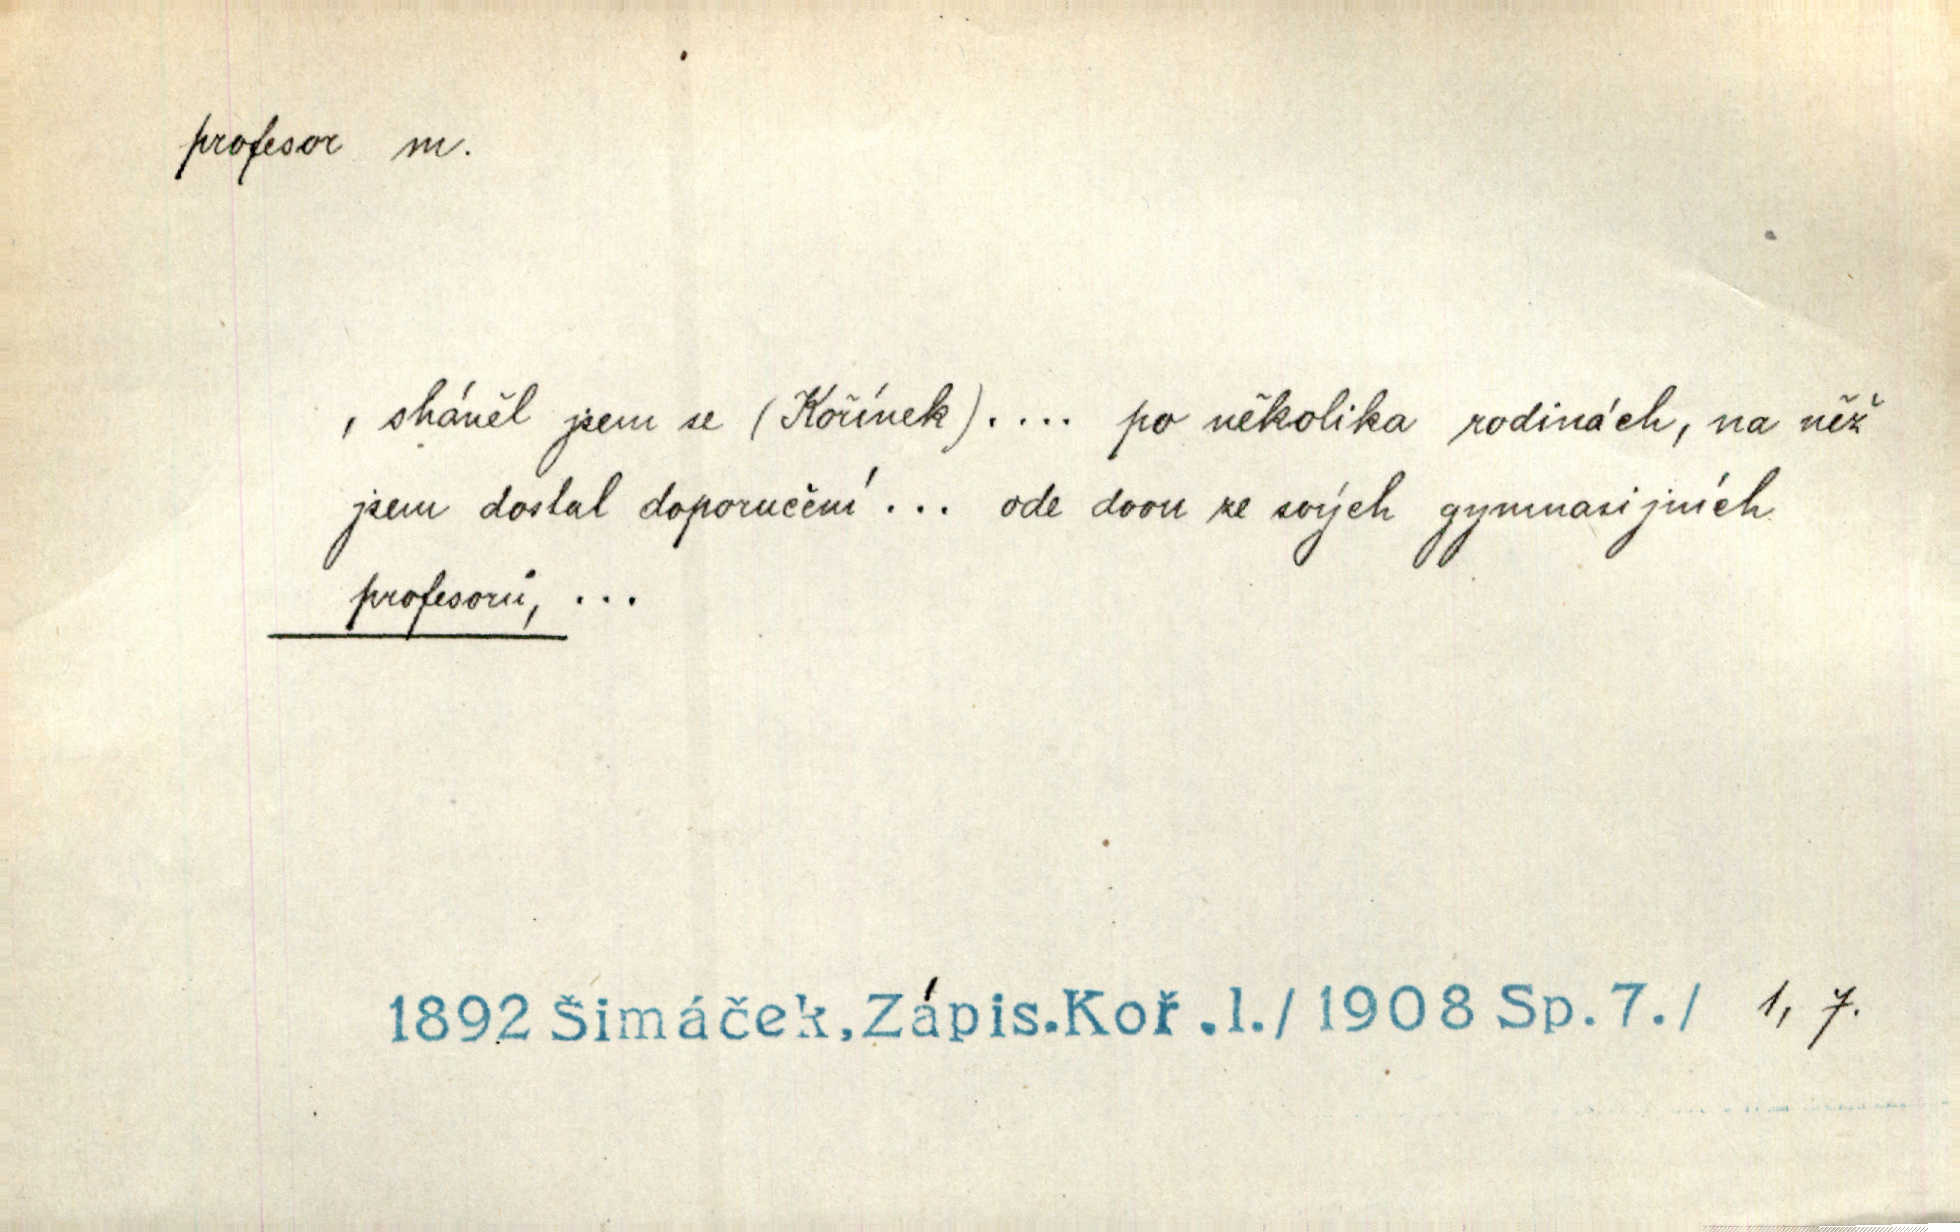 profesor m.
, sháněl jsem se (Kořínek).... po několika rodinách, na něž
jsem dostal doporučení ... ode dvou ze svých gymnasijních
profesorů, ...
1892 Šimáček, Zápis. Koř. 1./ 1908 Sp. 7./ 1, 7.